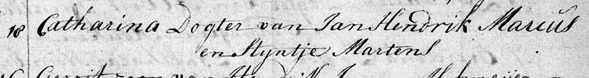 18 Catharina Dogter van Jan Hendrik Marcus
en Styntje Martens